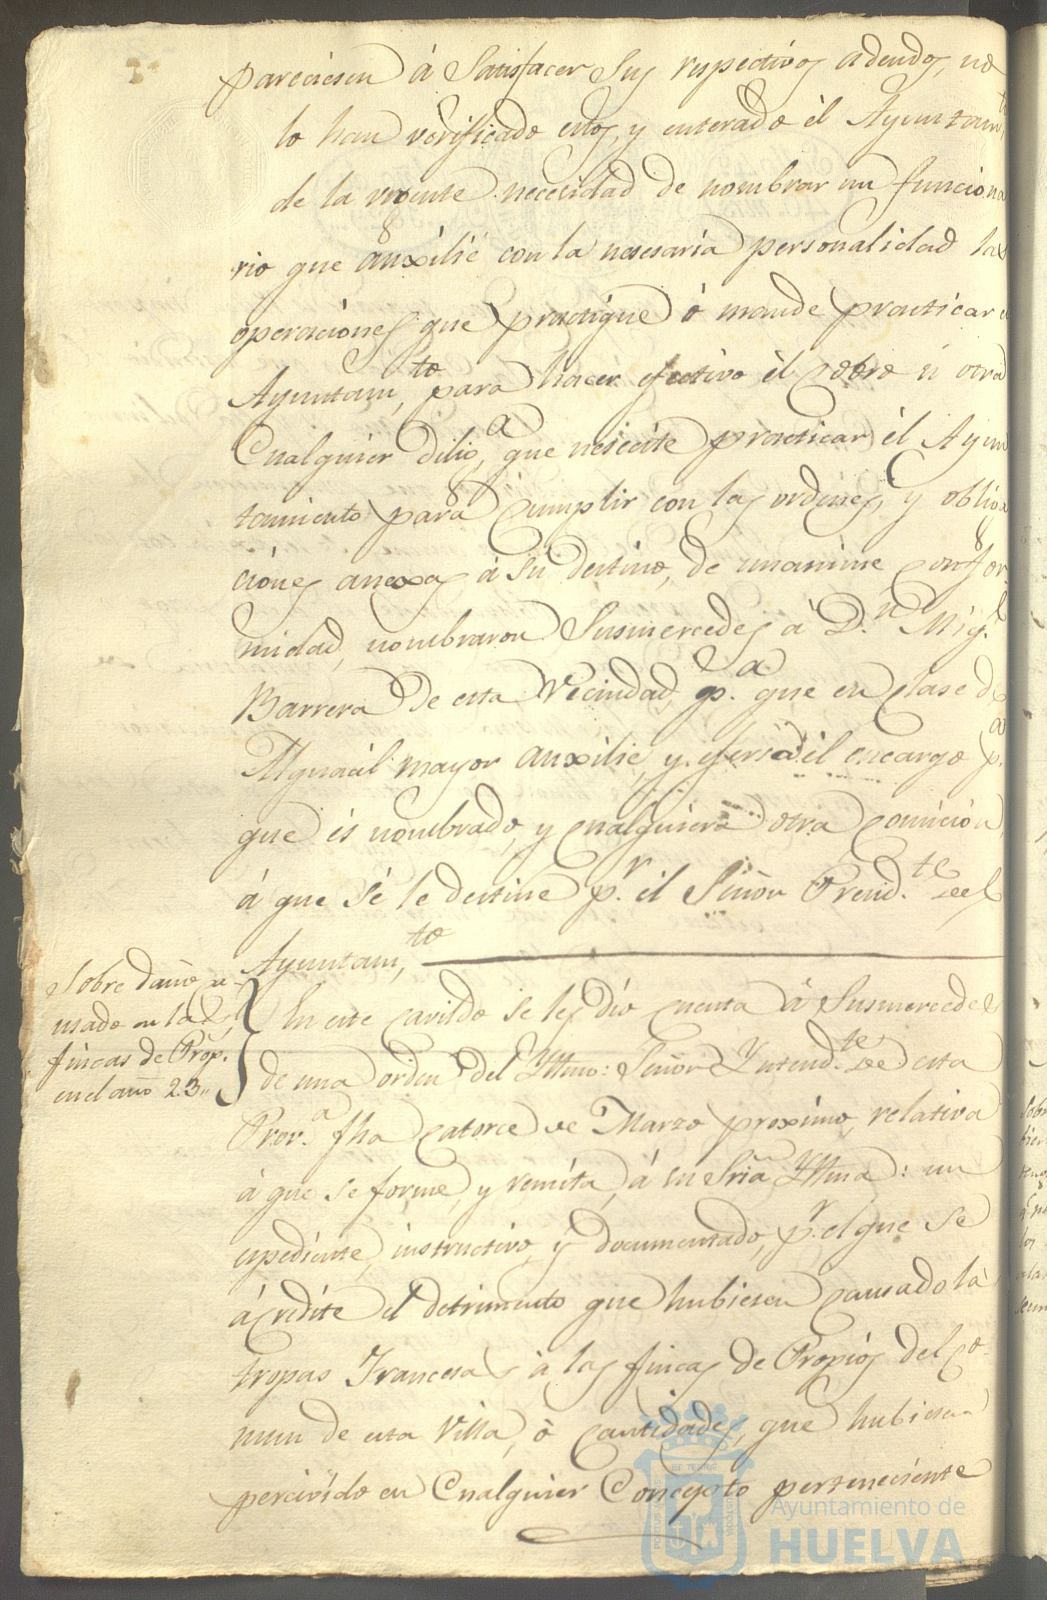 pareciesen á Satisfacer Sus respectivos adeudos, no
lo han verificado estos, y enterado él Ayuntam.to
de la urgente necesidad de nombrar un funciona
rio que auxílie con la nesesaria personalidad las
operaciónes que practique ó mande practicar el
Ayuntam.to para hacer efectivo él cobro ú otra
Cualquier dilig.a que nesecite practicar él Ayun
tamiento para cumplir con las ordenes, y obliga
ciónes anexas á sú destino, de unanime confor-
midad, nombraron Susmercedes á D.n Mig.l
Barrera de esta Vecindad, p.a que en clase de
Alguacíl mayor auxilie, y ejersa él encargo p.a
que és nombrado, y cualquiera otra comición
á que sé le destine p.r el Señor Presid.te de el
Ayuntam.to
Sobre daño ca-
usado en las
fincas de Prop.
en el año 23,,
En este cavildo se les dió cuenta á Susmercedes
de una orden del Yltmo: Señor Yntend.te de esta
Prov.a fha catorce de Marzo proxímo, relativa
á que se forme, y remíta, á su Sria Yltma: un
espediente, instructivo, y documentado, p.r el que se
ácredite el detrimento que hubiesen causado las
tropas Francesas á las fincas de Propiós del co-
mun de esta Villa, ó cantidades, que hubiesen
percivido en Cualquier Concepto perteneciente
Ayuntamiento de
HUELVA